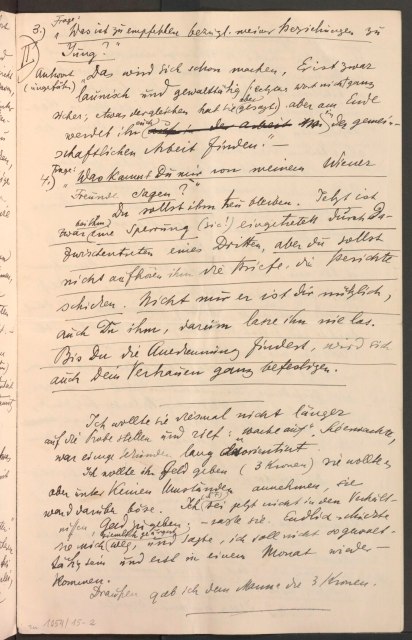 3.) Frage:
„Was ist zu empfehlen bezügl. meiner Beziehungen zu
Jung?"
II
Antwort „Das wird sich schon machen, Er ist zwar
(ungefähr) launisch und gewalttätig (letzteres war nicht ganz
sicher, etwas dergleichen hat sie aber gesagt) aber am Ende
werdet ihr euch in der gemein-
schaftlichen Arbeit finden! —
4.) Frage:
„Was kannst Du mir von meinem Wiener
Freunde sagen?"
Du sollst ihm treu bleiben. Jetzt ist
zwar eine Sperrung (sic!) eingetreten durch Da-
zwischentreten eines Dritten, aber du sollst
nicht aufhören ihm die Briefe, die Berichte
schicken. Nicht nur er ist dir nützlich,
auch Du ihm, darum lasse ihn nie los.
Bis Du die Anerkennung findest, wird sich
auch Dein Vertrauen ganz befestigen.
Ich wollte sie diesmal nicht länger
auf die Probe stellen und rief: „wache auf". Sie erwachte,
war einige Sekunden lang desorientiert.
Ich wollte ihr Geld geben (3 Kronen) sie wollte es
aber unter keinen Umständen annehmen, sie
ward darüber böse. Ich sei jetzt nicht in den Verhält-
nissen, Geld zu geben; — sagte sie. Endlich schickte
sie mich ziemlich weg, und sagte, ich soll nicht so gewalt-
tätig sein und erst in einem Monat wieder-
kommen.
Draußen gab ich dem Manne die 3 Kronen.
1054/15-2